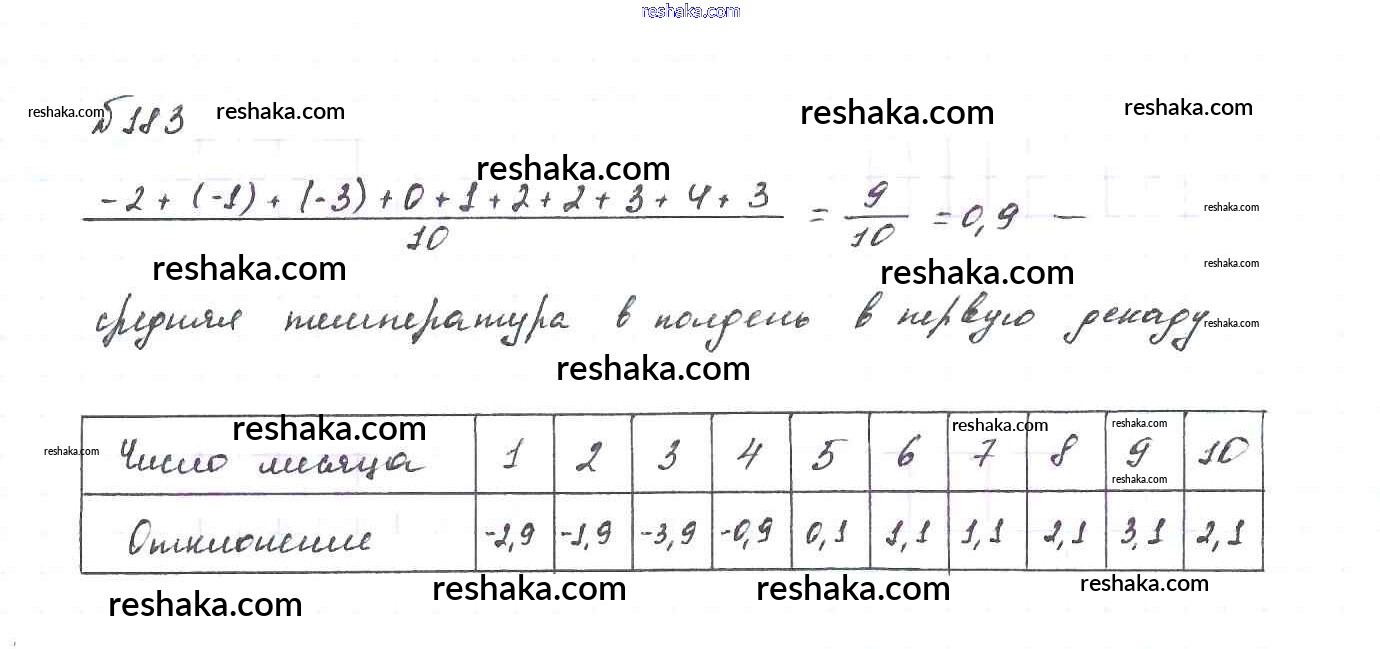 reshaka.com
№183
reshaka.com reshaka.com reshaka.com reshaka.com
reshaka.com
-2 + (-1) + (-3) + 0 + 1 + 2 + 2 + 3 + 4 + 3
10
= 9/10 = 0,9 —
reshaka.com
reshaka.com reshaka.com reshaka.com
средняя температура в полдень в первую декаду
reshaka.com
reshaka.com
reshaka.com reshaka.com reshaka.com
reshaka.com
Число месяца 1 2 3 4 5 6 7 8 9 10
reshaka.com
Отклонение -2,9 -1,9 -3,9 -0,9 0,1 1,1 1,1 2,1 3,1 2,1
reshaka.com reshaka.com reshaka.com reshaka.com